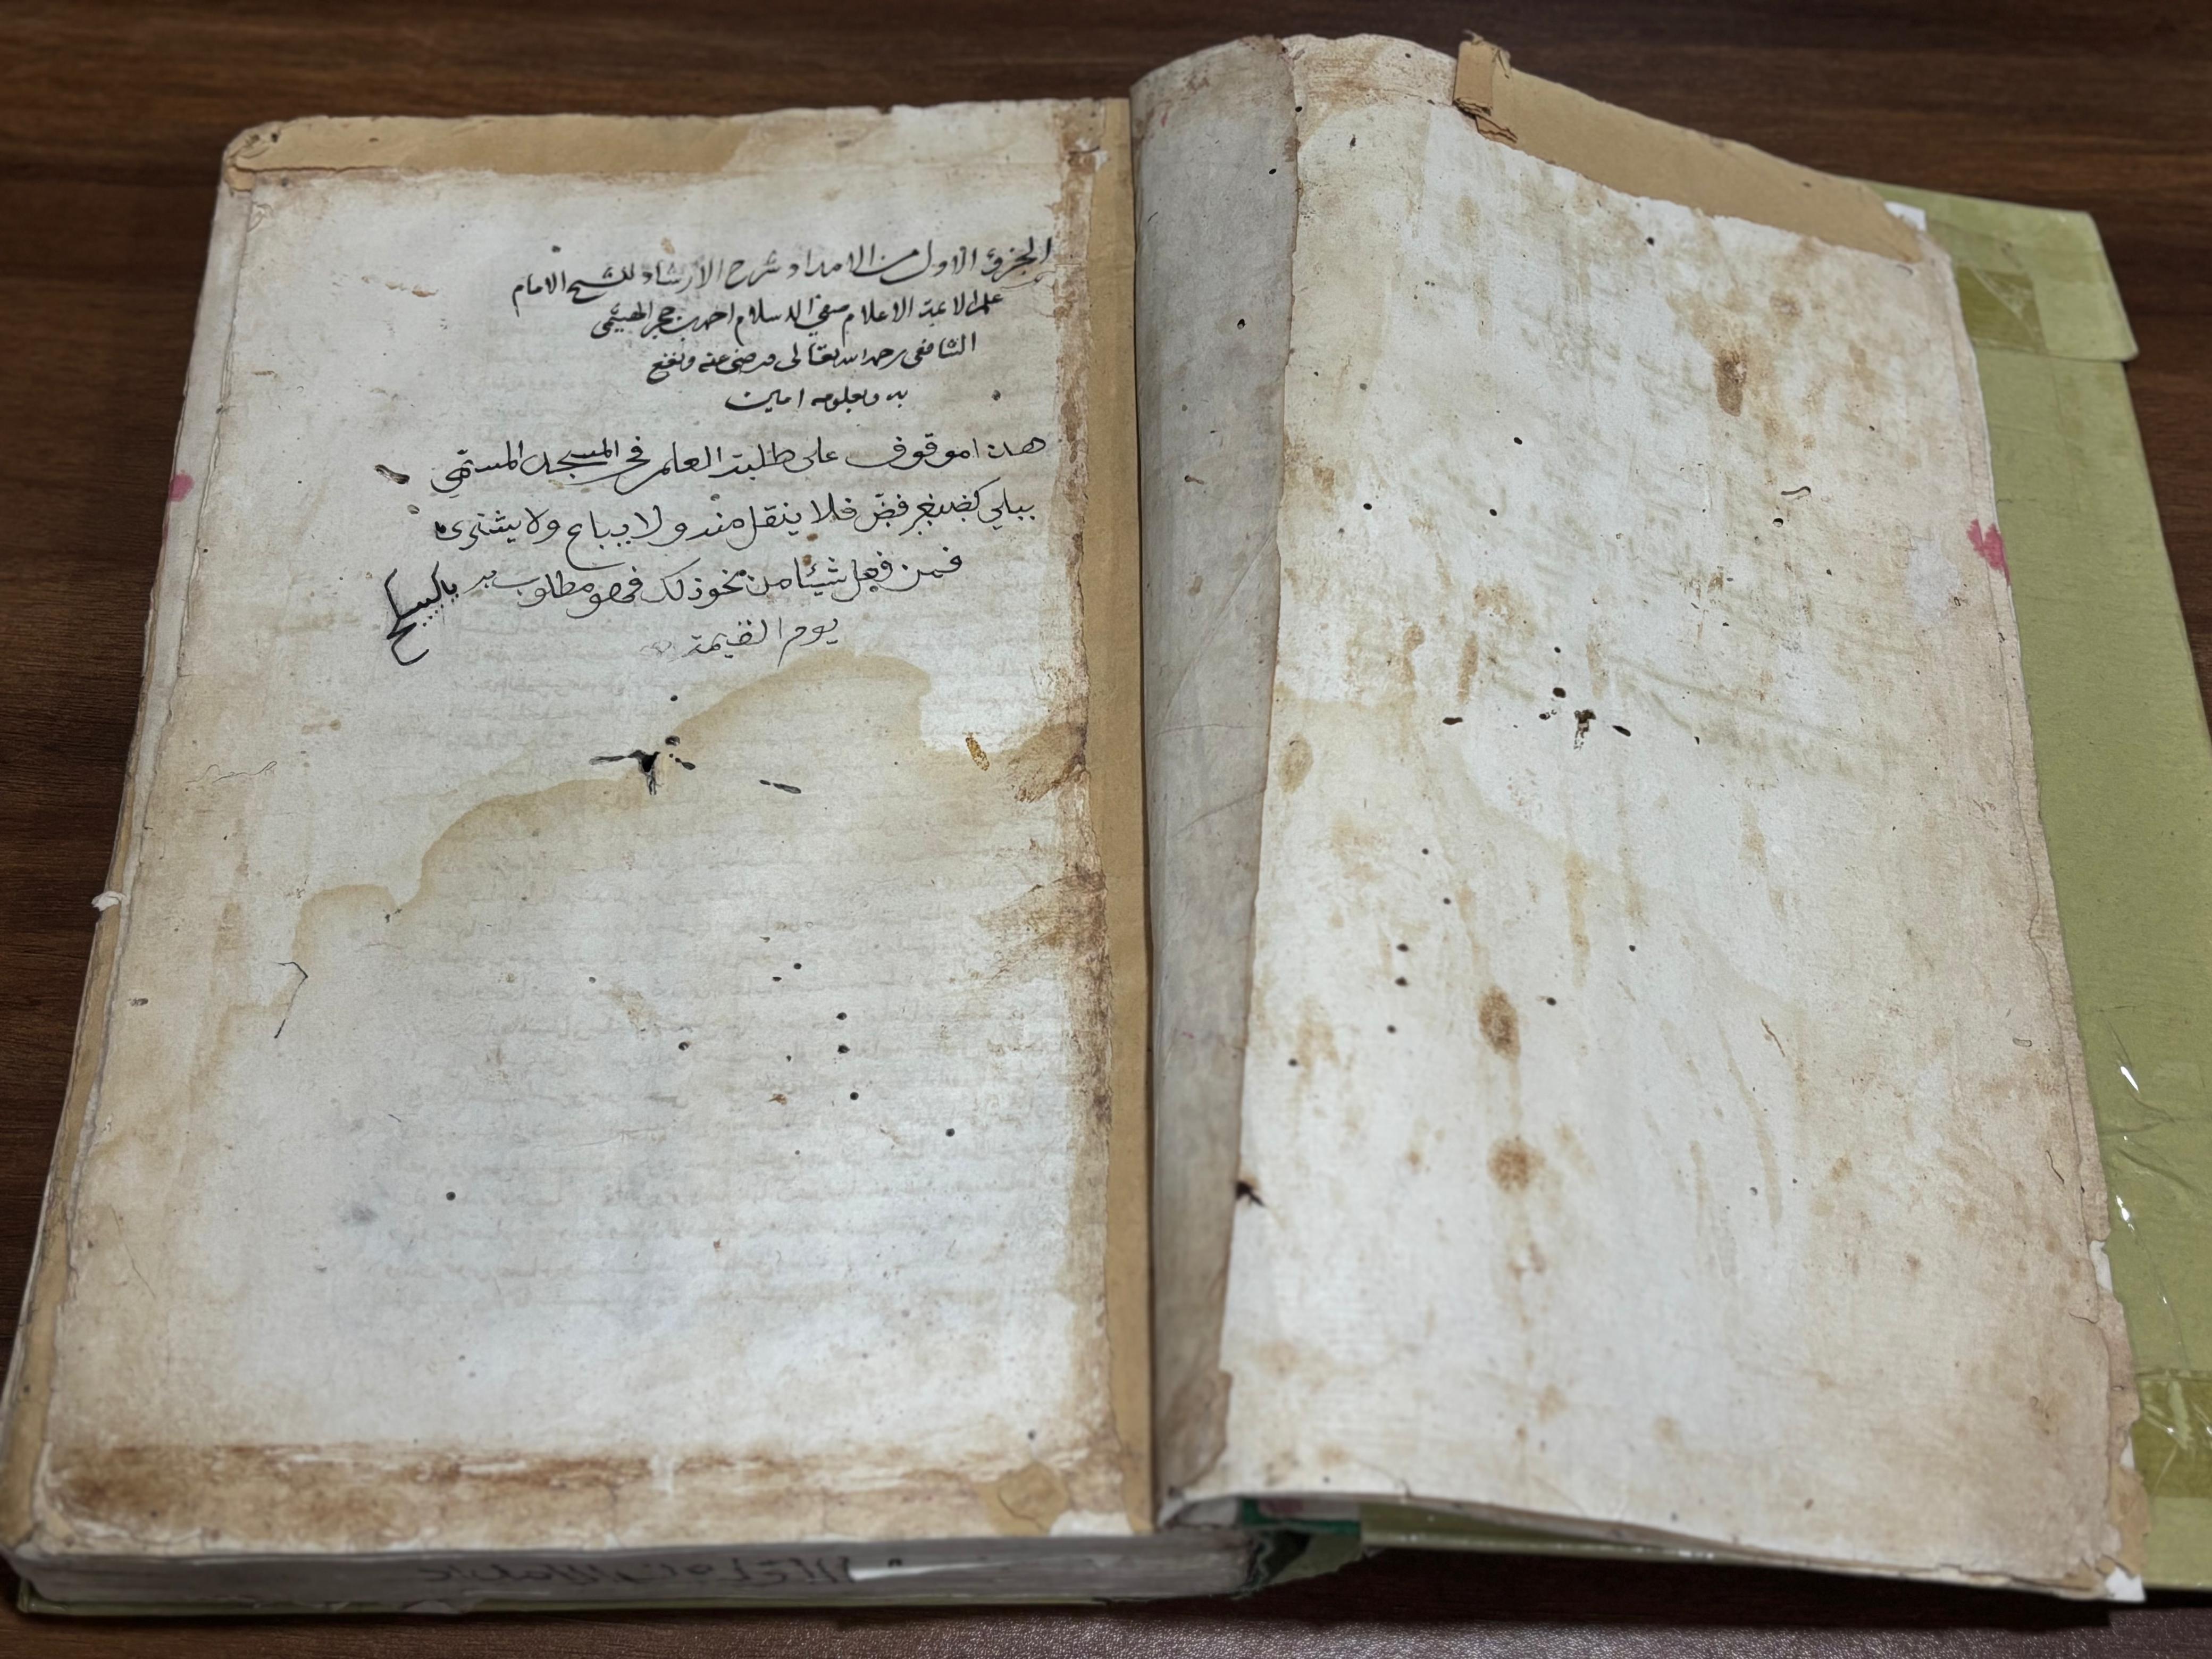 الجزؤ الاول من الامداد شرح الارشاد للشيخ الامام
علم الائمة الاعلام مفتي الاسلام احمد بن حجر الهيتمي
الشافعي رحمه الله تعالى ورضي عنه ونفع
به وبعلومه امين
هذا موقوف على طلبة العلم في المسجد المستمى
ببلي فلا ينقل منه ولا يباع ولا يشترى
فمن فعل شيئا من نحو ذلك فهو مطلوب به
يوم القيمة